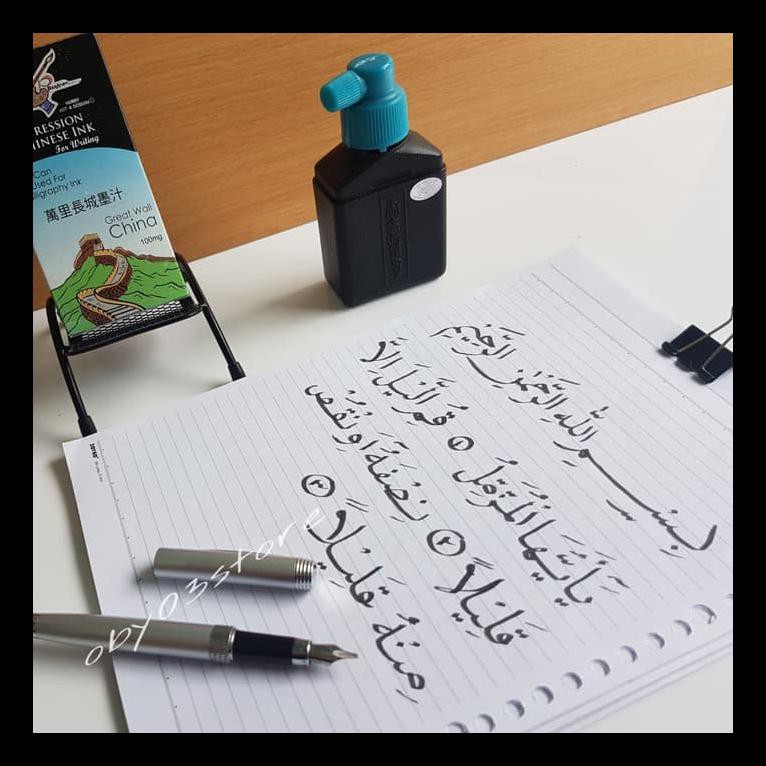 HOBBY
RESSION
HINESE INK
For Writing
Can
Used For
lligraphy Ink
萬里長城墨汁
Great Wall
China
100mg
بِسْــــمِ اللهِ الرَّحْمٰنِ الرَّحِيْمِ
يٰاَيُّهَا الْمُزَّمِّلُ ① قُمِ الَّيْلَ اِلَّا
قَلِيْلًا ② نِصْفَهٗ اَوِ نْقُصْ
مِنْهُ قَلِيْلًا ③
oby03store